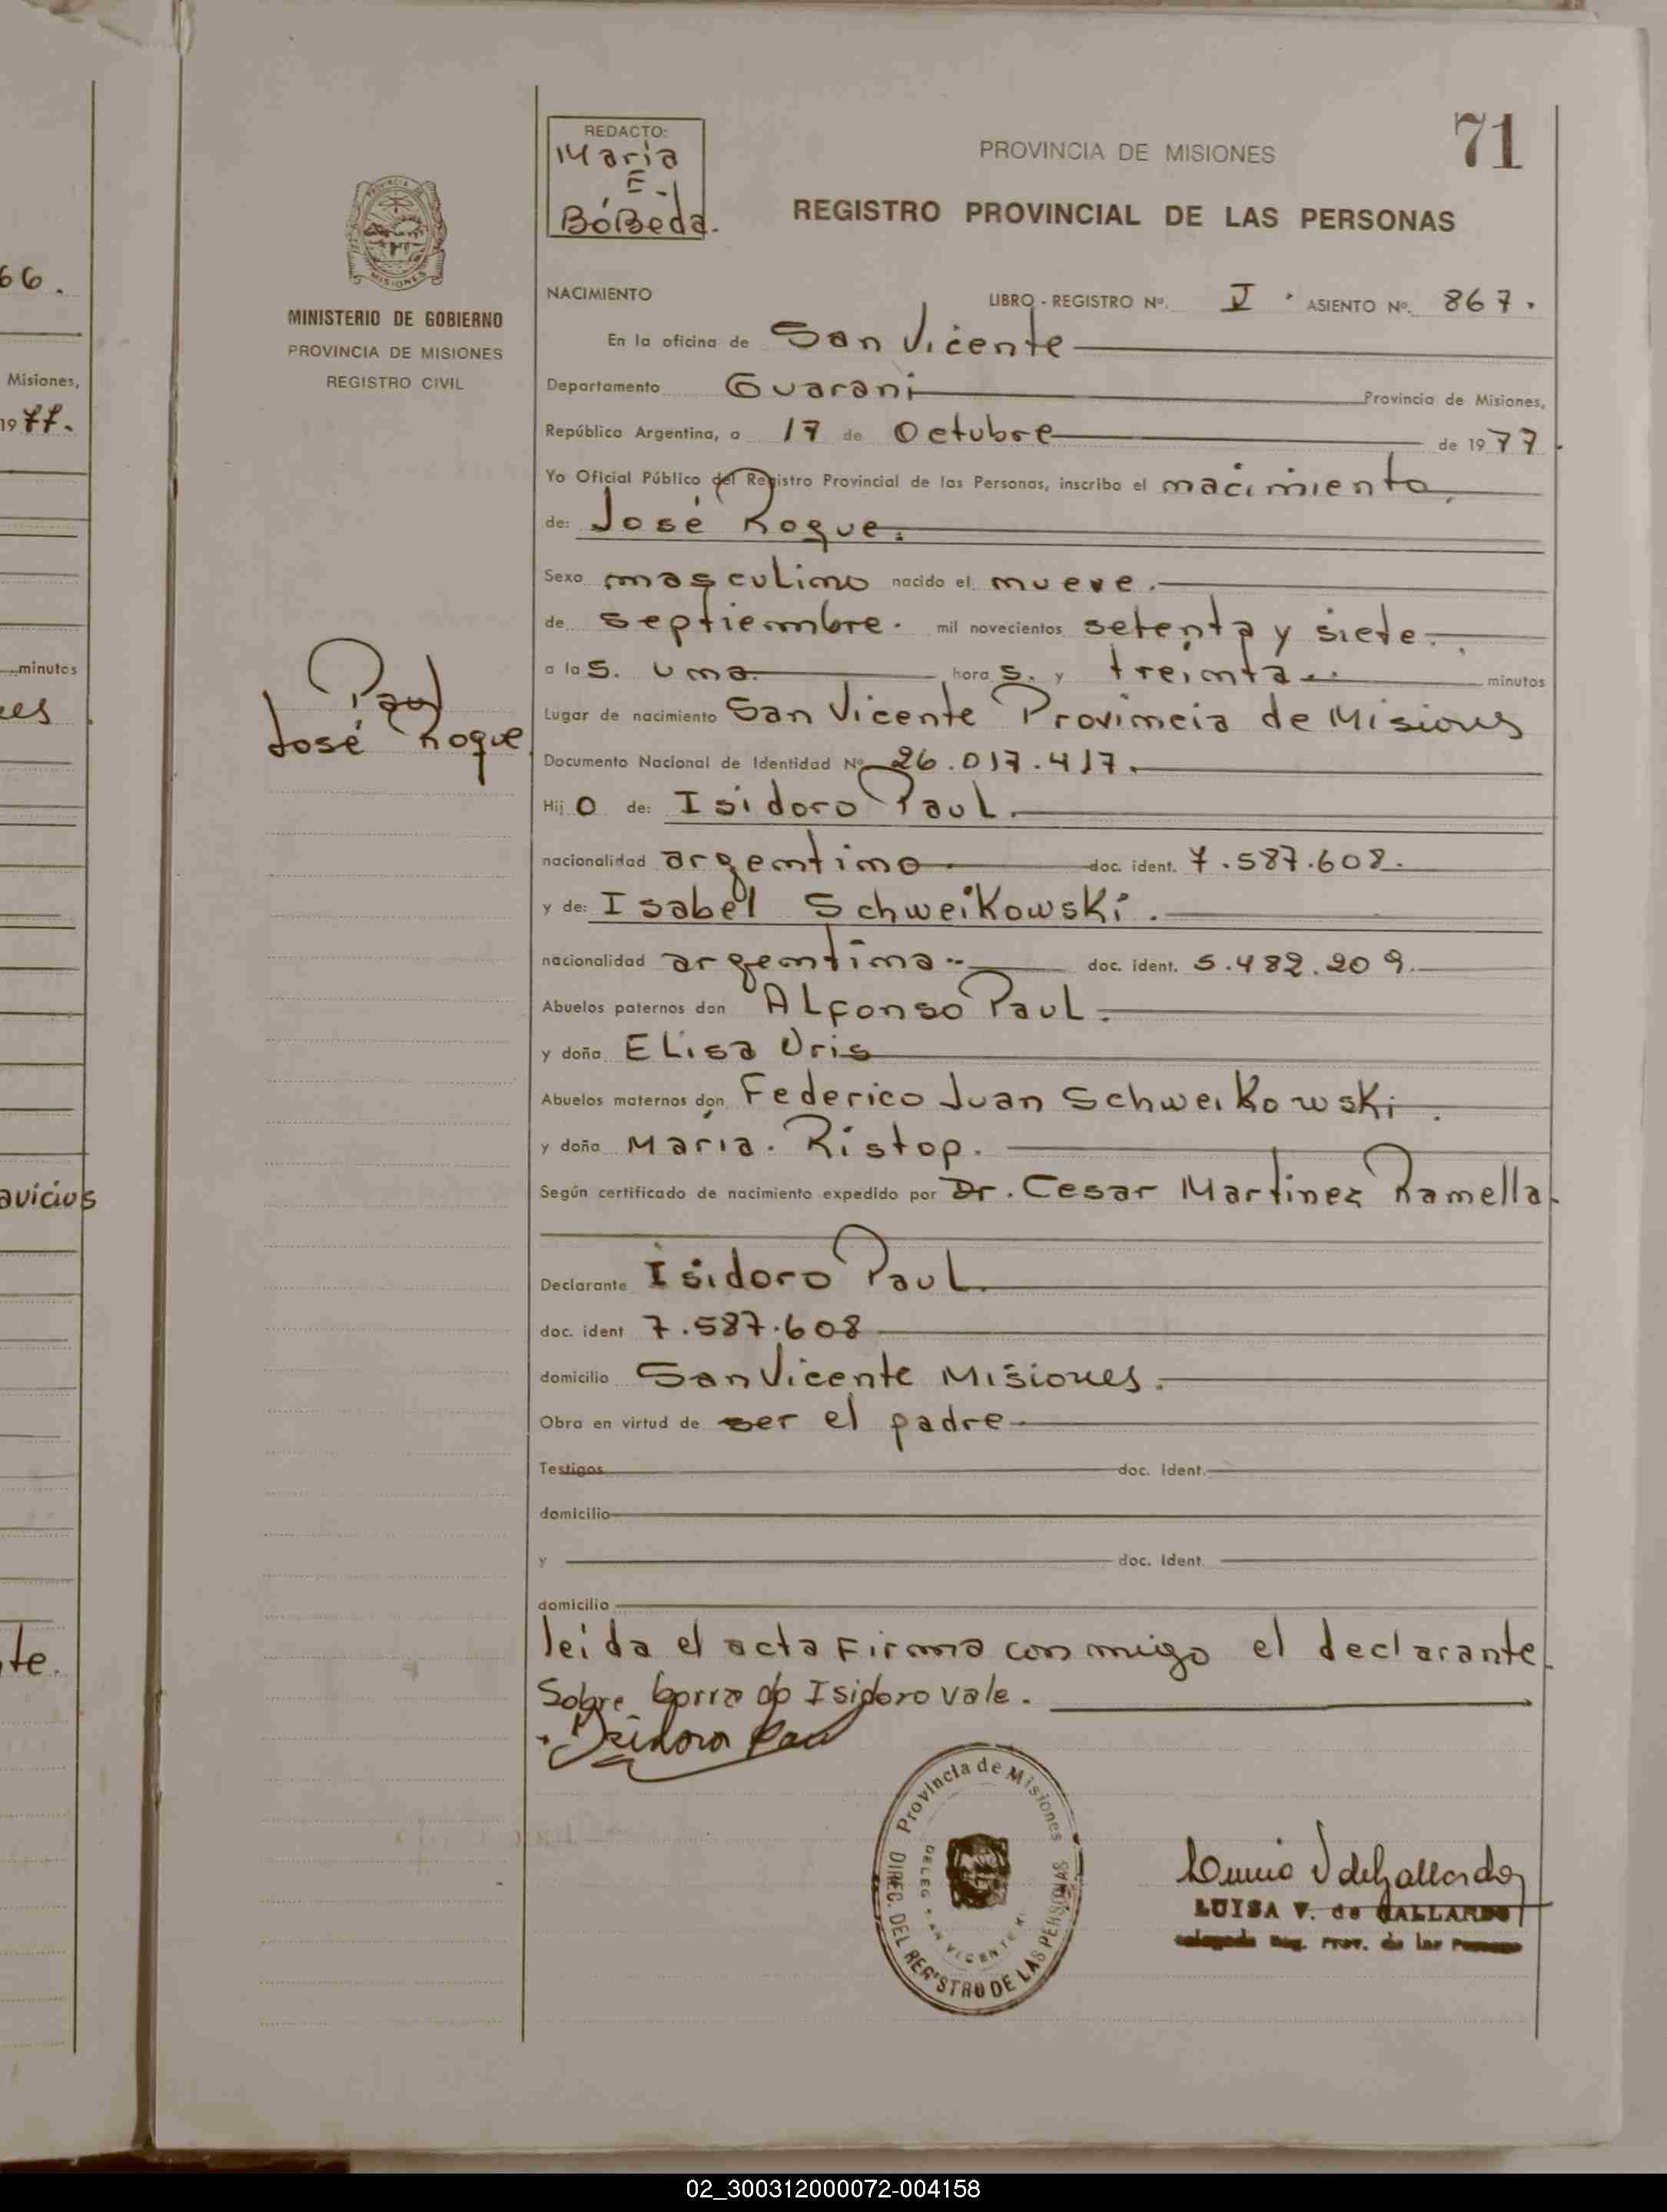 66.
Misiones,
1977.
minutos
es
avicius
te.
71
REDACTO:
Maria
E.
Bóbeda.
PROVINCIA DE MISIONES
REGISTRO PROVINCIAL DE LAS PERSONAS
MINISTERIO DE GOBIERNO
PROVINCIA DE MISIONES
REGISTRO CIVIL
Paul
José Roque
NACIMIENTO LIBRO - REGISTRO Nº. V ASIENTO Nº. 867.
En la oficina de San Vicente
Departamento Guarani Provincia de Misiones,
República Argentina, a 17 de Octubre de 1977.
Yo Oficial Público del Registro Provincial de las Personas, inscribo el nacimiento,
de: José Roque.
Sexo masculino nacido el nueve.
de septiembre. mil novecientos setenta y siete.
a las. una. horas. y treinta. minutos
Lugar de nacimiento San Vicente Provincia de Misiones
Documento Nacional de Identidad Nº 26.017.417.
Hijo de: Isidoro Paul.
nacionalidad argentino doc. ident. 7.587.608.
y de: Isabel Schweikowski.
nacionalidad argentina doc. ident. 5.482.209.
Abuelos paternos don Alfonso Paul.
y doña Elisa Uris
Abuelos maternos don Federico Juan Schweikowski.
y doña María. Ristop.
Según certificado de nacimiento expedido por Dr. Cesar Martinez Ramella
Declarante Isidoro Paul.
doc. ident 7.587.608
domicilio San Vicente Misiones.
Obra en virtud de ser el padre
Testigos doc. Ident.
domicilio
y doc. Ident.
domicilio
leida el acta Firma con migo el declarante
Sobre borra do Isidoro vale.
Isidoro Paul
Provincia de Misiones
DIREC. DEL REGISTRO DE LAS PERSONAS
DELEG. SAN VICENTE
V de Gallardo
LUISA V. de GALLARDO
Delegada Reg. Prov. de las Personas
02_300312000072-004158